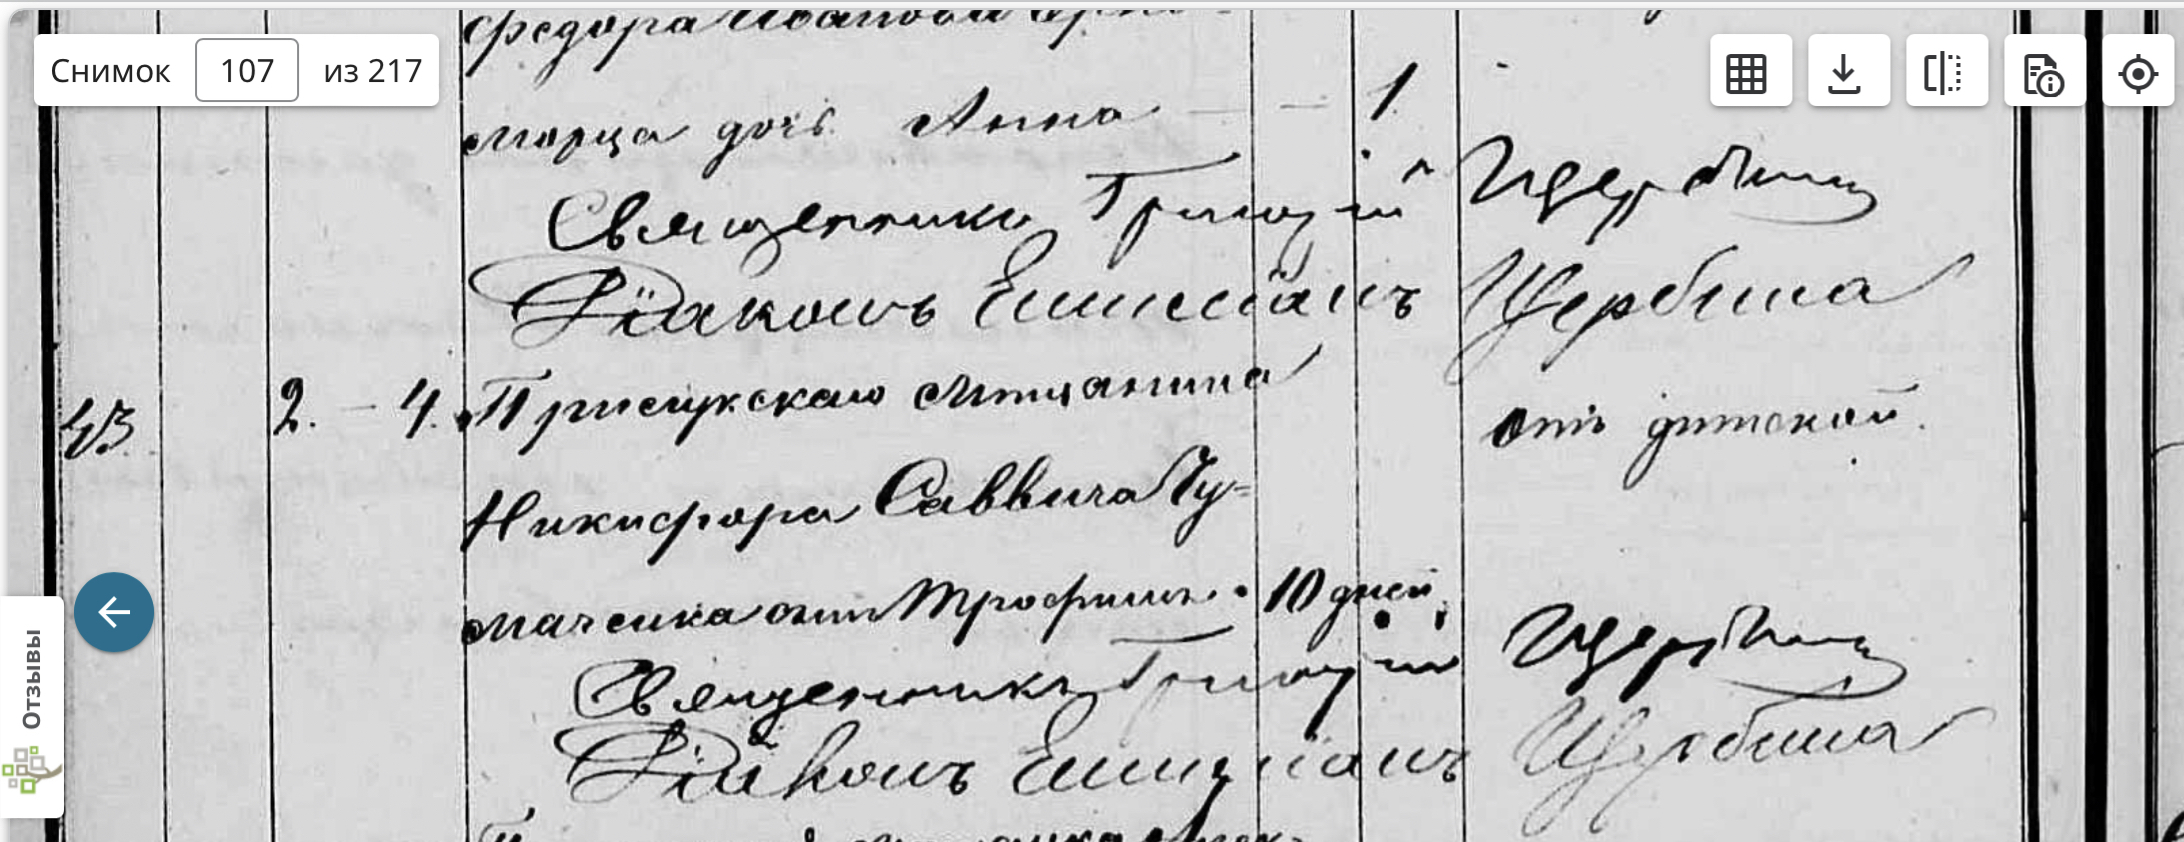 Федора Иванова
Снимок 107 из 217
марца дочь Анна — — 1.
Священникъ Григорій Щербина
Діаконъ Емиліанъ Щербина
43. 2. — 4. Прилукскаго мѣщанина отъ дѣтской.
Никифора Саввича Чу=
маченка сынъ Трофимъ. 10 дней.
Священникъ Григорій Щербина
Діаконъ Емиліанъ Щербина
Отзывы